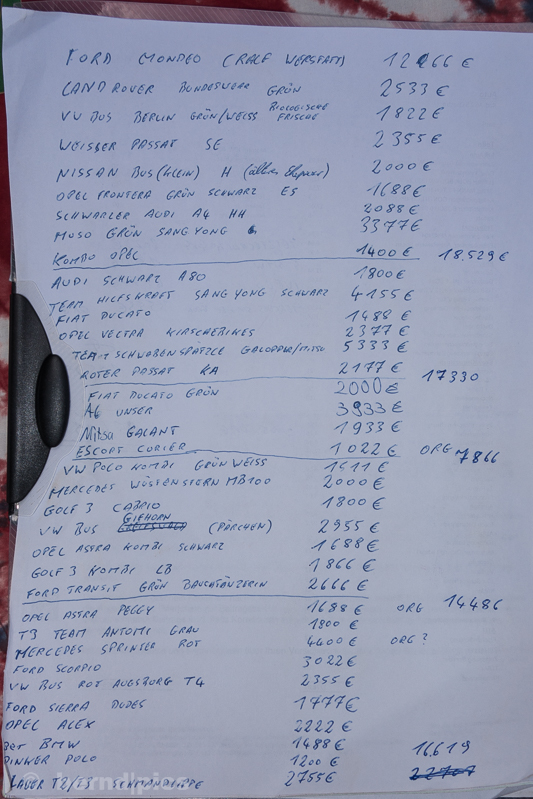 FORD MONDEO (RALF WERSTATT) 1266 €
LANDROVER BUNDESWEHR GRÜN 2533 €
VW BUS BERLIN GRÜN/WEISS BIOLOGISCHE FRISCHE 1822 €
WEISSER PASSAT SE 2355 €
NISSAN BUS (KLEIN) H 2000 €
OPEL FRONTERA GRÜN SCHWARZ ES 1688 €
SCHWARZER AUDI A4 HH 2088 €
MUSO GRÜN SANGYONG 3377 €
KOMBO OPEL 1400 € 18.529 €
AUDI SCHWARZ A80 1800 €
TEAM HILFSKRAFT SANGYONG SCHWARZ 4155 €
FIAT DUCATO 1488 €
OPEL VECTRA KIRSCHERIKES 2377 €
TEAM SCHWABENSPÄTZLE GALOPPER/MITSU 5333 €
ROTER PASSAT KA 2177 € 17330
FIAT DUCATO GRÜN 2000 €
A6 UNSER 3933 €
Mitsu GALANT 1933 €
ESCORT CURIER 1022 € ORG 7866
VW POLO KOMBI GRÜN WEISS 1511 €
MERCEDES WÜSTENSTERN MB100 2000 €
GOLF 3 CABRIO 1800 €
VW BUS GIFHORN (PÄRCHEN) 2955 €
OPEL ASTRA KOMBI SCHWARZ 1688 €
GOLF 3 KOMBI LB 1866 €
FORD TRANSIT GRÜN BAUCHTÄNZERIN 2666 €
OPEL ASTRA PEGGY 1688 € ORG 14486
T3 TEAM ANTOMI GRAU 1800 €
MERCEDES SPRINTER ROT 4400 € ORG?
FORD SCORPIO 3022 €
VW BUS ROT AUGSBURG T4 2355 €
FORD SIERRA DUDES 1477 €
OPEL ALEX 2222 €
3er BMW 1488 € 16619
PINKER POLO 1200 €
2755 €